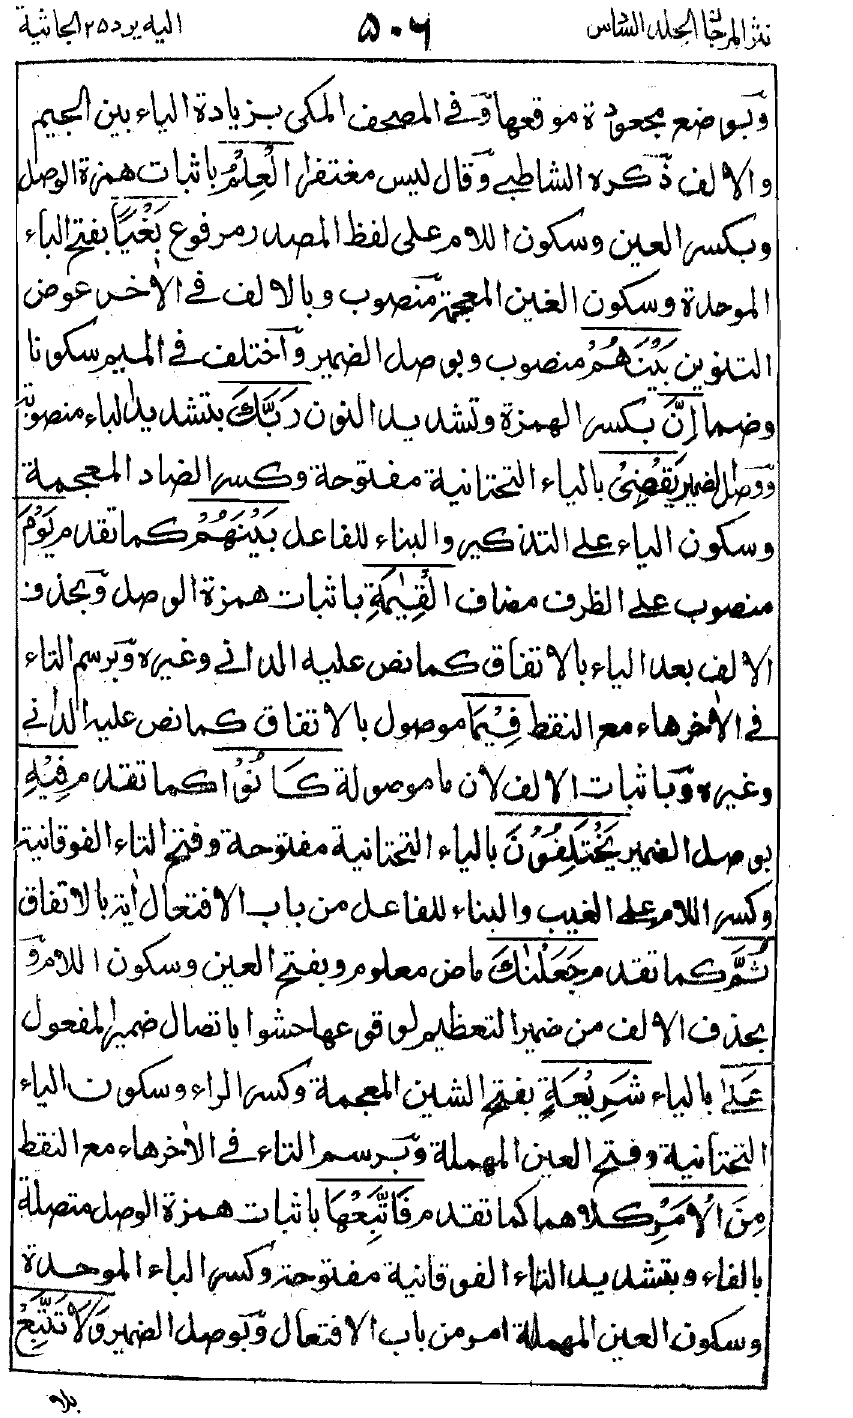 نثر المرجان الجلد السادس ٥٠٦ اليه يرد ٢٥ الجاثية
وبوضع مجعودة موقعها وفي المصحف المكي بزيادة الياء بين الجيم
والالف ذكره الشاطبي وقال ليس مغتفرا الْعِلْمُ باثبات همزة الوصل
وبكسر العين وسكون اللام على لفظ المصدر مرفوع بَغْيًا بفتح الباء
الموحدة وسكون الغين المعجمة منصوب وبالالف في الاخر عوض
التنوين بَيْنَهُمْ منصوب وبوصل الضمير واختلف في الميم سكونا
وضما إِنَّ بكسر الهمزة وتشديد النون رَبَّكَ بتشديد الباء منصوبة
ووصل الضمير يَقْضِيْ بالياء التحتانية مفتوحة وكسر الضاد المعجمة
وسكون الياء على التذكير والبناء للفاعل بَيْنَهُمْ كما تقدم يَوْمَ
منصوب على الظرف مضاف الْقِيٰمَةِ باثبات همزة الوصل وبحذف
الالف بعد الياء بالاتفاق كما نص عليه الداني وغيره وبرسم التاء
في الاخر هاء مع النقط فِيْمَا موصول بالاتفاق كما نص عليه الداني
وغيره وباثبات الالف لان ما موصولة كَانُوْا كما تقدم فِيْهِ
بوصل الضمير يَخْتَلِفُوْنَ بالياء التحتانية مفتوحة وفتح التاء الفوقانية
وكسر اللام على الغيب والبناء للفاعل من باب الافتعال اية بالاتفاق
ثُمَّ كما تقدم جَعَلْنٰكَ ماض معلوم وبفتح العين وسكون اللام و
بحذف الالف من ضمير التعظيم لوقوعها حشوا باتصال ضمير المفعول
عَلٰى بالياء شَرِيْعَةٍ بفتح الشين المعجمة وكسر الراء وسكون الياء
التحتانية وفتح العين المهملة وبرسم التاء في الاخر هاء مع النقط
مِنَ الْاَمْرِ كلاهما كما تقدم فَاتَّبِعْهَا باثبات همزة الوصل متصلة
بالفاء وبتشديد التاء الفوقانية مفتوحة وكسر الباء الموحدة
وسكون العين المهملة امر من باب الافتعال وبوصل الضمير وَلَا تَتَّبِعْ